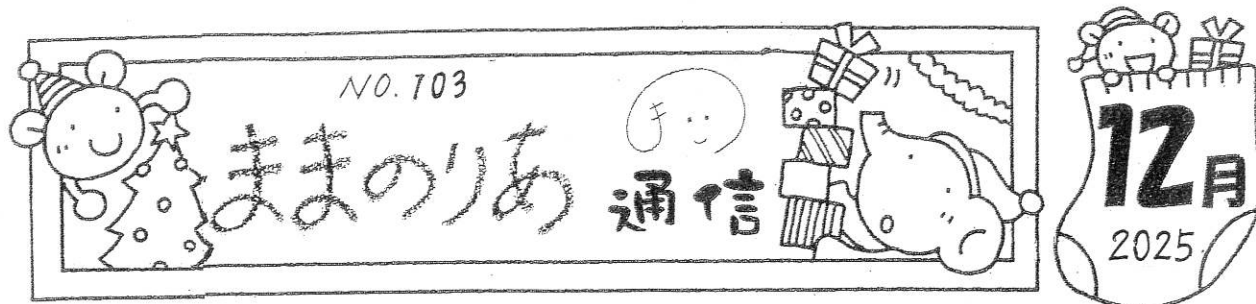 NO. 103
ままのりあ 通信
ま
12月
2025